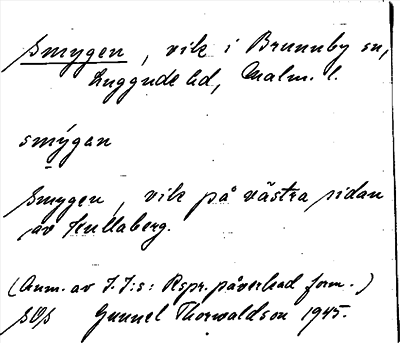 Smygen, vik i Brunnby sn,
Luggude hd, Malm. l.
smýgan
Smygen, vik på västra sidan
av Kullaberg.
(Anm. av I. I:s: Rspr. påverkad form.)
Gunnel Thorwaldson 1945.